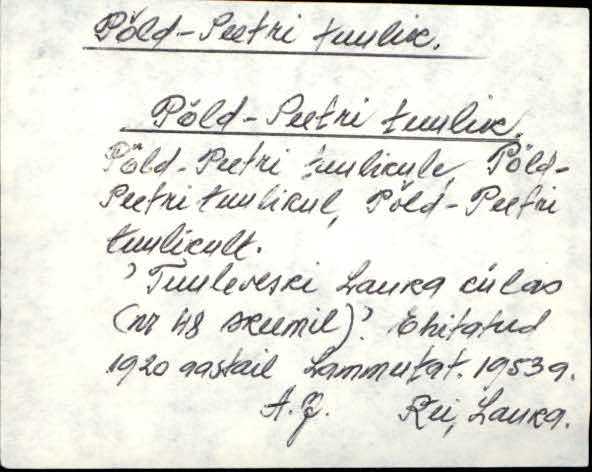 Põld-Peetri tuulik.
Põld-Peetri tuulik.
Põld-Peetri tuulikule, Põld-
Peetri tuulikul, Põld-Peetri
tuulikult.
'Tuuleveski Lauka külas
(nr 48 skeemil)'. Ehitatud
1920 aastail Lammutat. 1953 a.
A. J. Rei, Lauka.